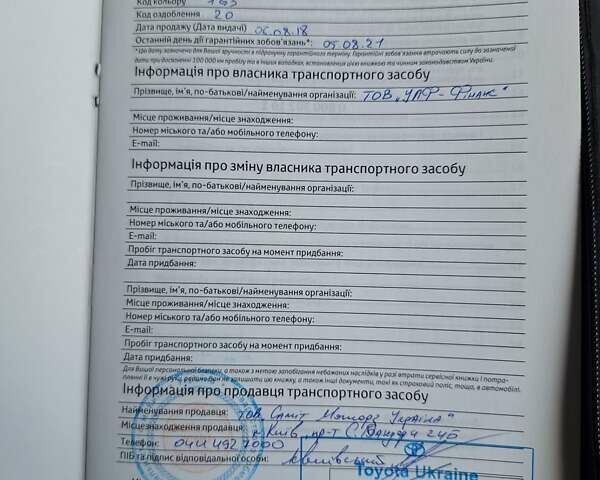 Код кольору
Код оздоблення 20
Дата продажу (Дата видачі) 06.08.18
Останній день дії гарантійних зобов'язань*: 05.08.21
* Цю дату зазначено для Вашої зручності в підрахунку гарантійного терміну. Гарантійні зобов'язання втрачають силу до зазначеної
дати при досягненні 100 000 км пробігу та в інших випадках, встановлених цією книжкою та чинним законодавством України.
Інформація про власника транспортного засобу
Прізвище, ім'я, по-батькові/найменування організації: ТОВ „УЛФ-Фінанс"
Місце проживання/місце знаходження:
Номер міського та/або мобільного телефону:
E-mail:
Інформація про зміну власника транспортного засобу
Прізвище, ім'я, по-батькові/найменування організації:
Місце проживання/місце знаходження:
Номер міського та/або мобільного телефону:
E-mail:
Пробіг транспортного засобу на момент придбання:
Дата придбання:
Прізвище, ім'я, по-батькові/найменування організації:
Місце проживання/місце знаходження:
Номер міського та/або мобільного телефону:
E-mail:
Пробіг транспортного засобу на момент придбання:
Дата придбання:
Для Вашої персональної безпеки, а також з метою запобігання небажаних наслідків у разі втрати сервісної книжки і потра-
пляння її в чужі руки, не залишати цю книжку, а також інші документи, такі як страховий поліс, тощо, в автомобілі.
Інформація про продавця транспортного засобу
Найменування продавця: ТОВ „Саміт Моторз Україна"
Місцезнаходження продавця: м. Київ, пр-т С. Бандери 24Б
Телефон: 044 492 7000
ПІБ та підпис відповідальної особи:
Toyota Ukraine